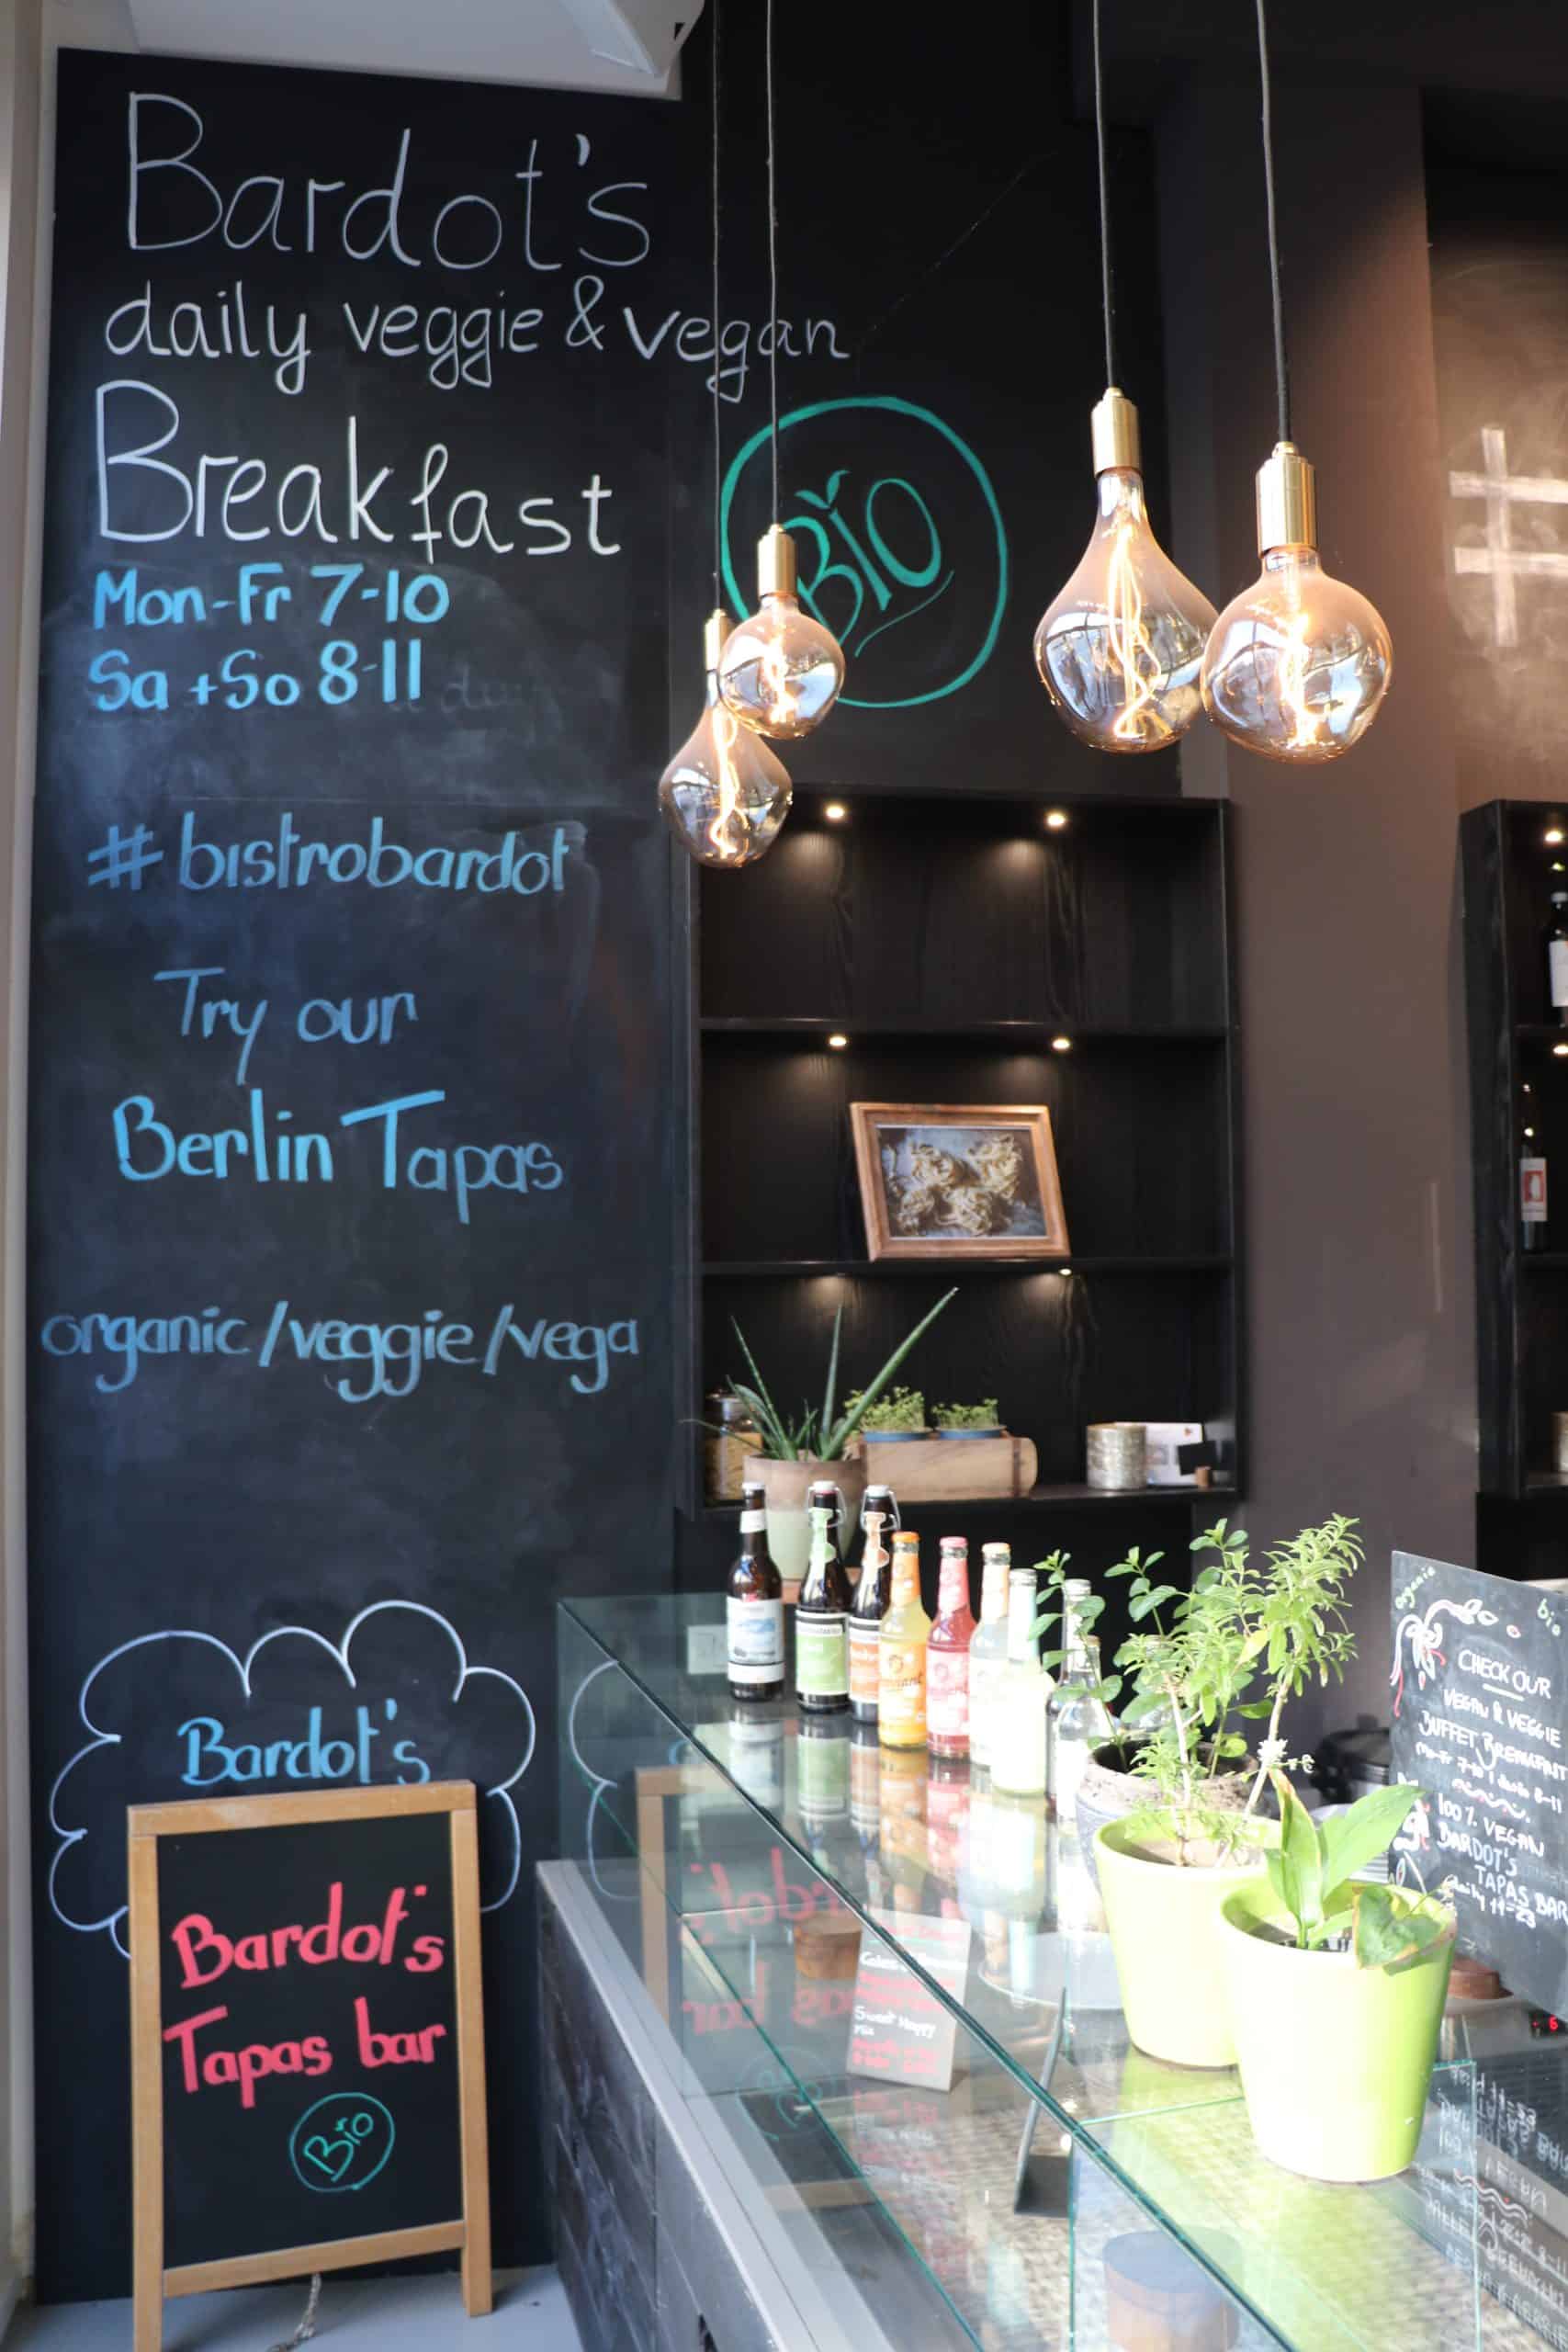 Bardot's
daily veggie & vegan
Breakfast
Mon-Fr 7-10
Sa + So 8-11
BIO
#bistrobardot
Try our
Berlin Tapas
organic/veggie/vega
Bardot's
Bardot's
Tapas bar
BIO
Sweet Happy
organic
bio
CHECK OUR
VEGAN & VEGGIE
BUFFET BREAKFAST
100% VEGAN
BARDOT'S
TAPAS BAR
daily 17-23